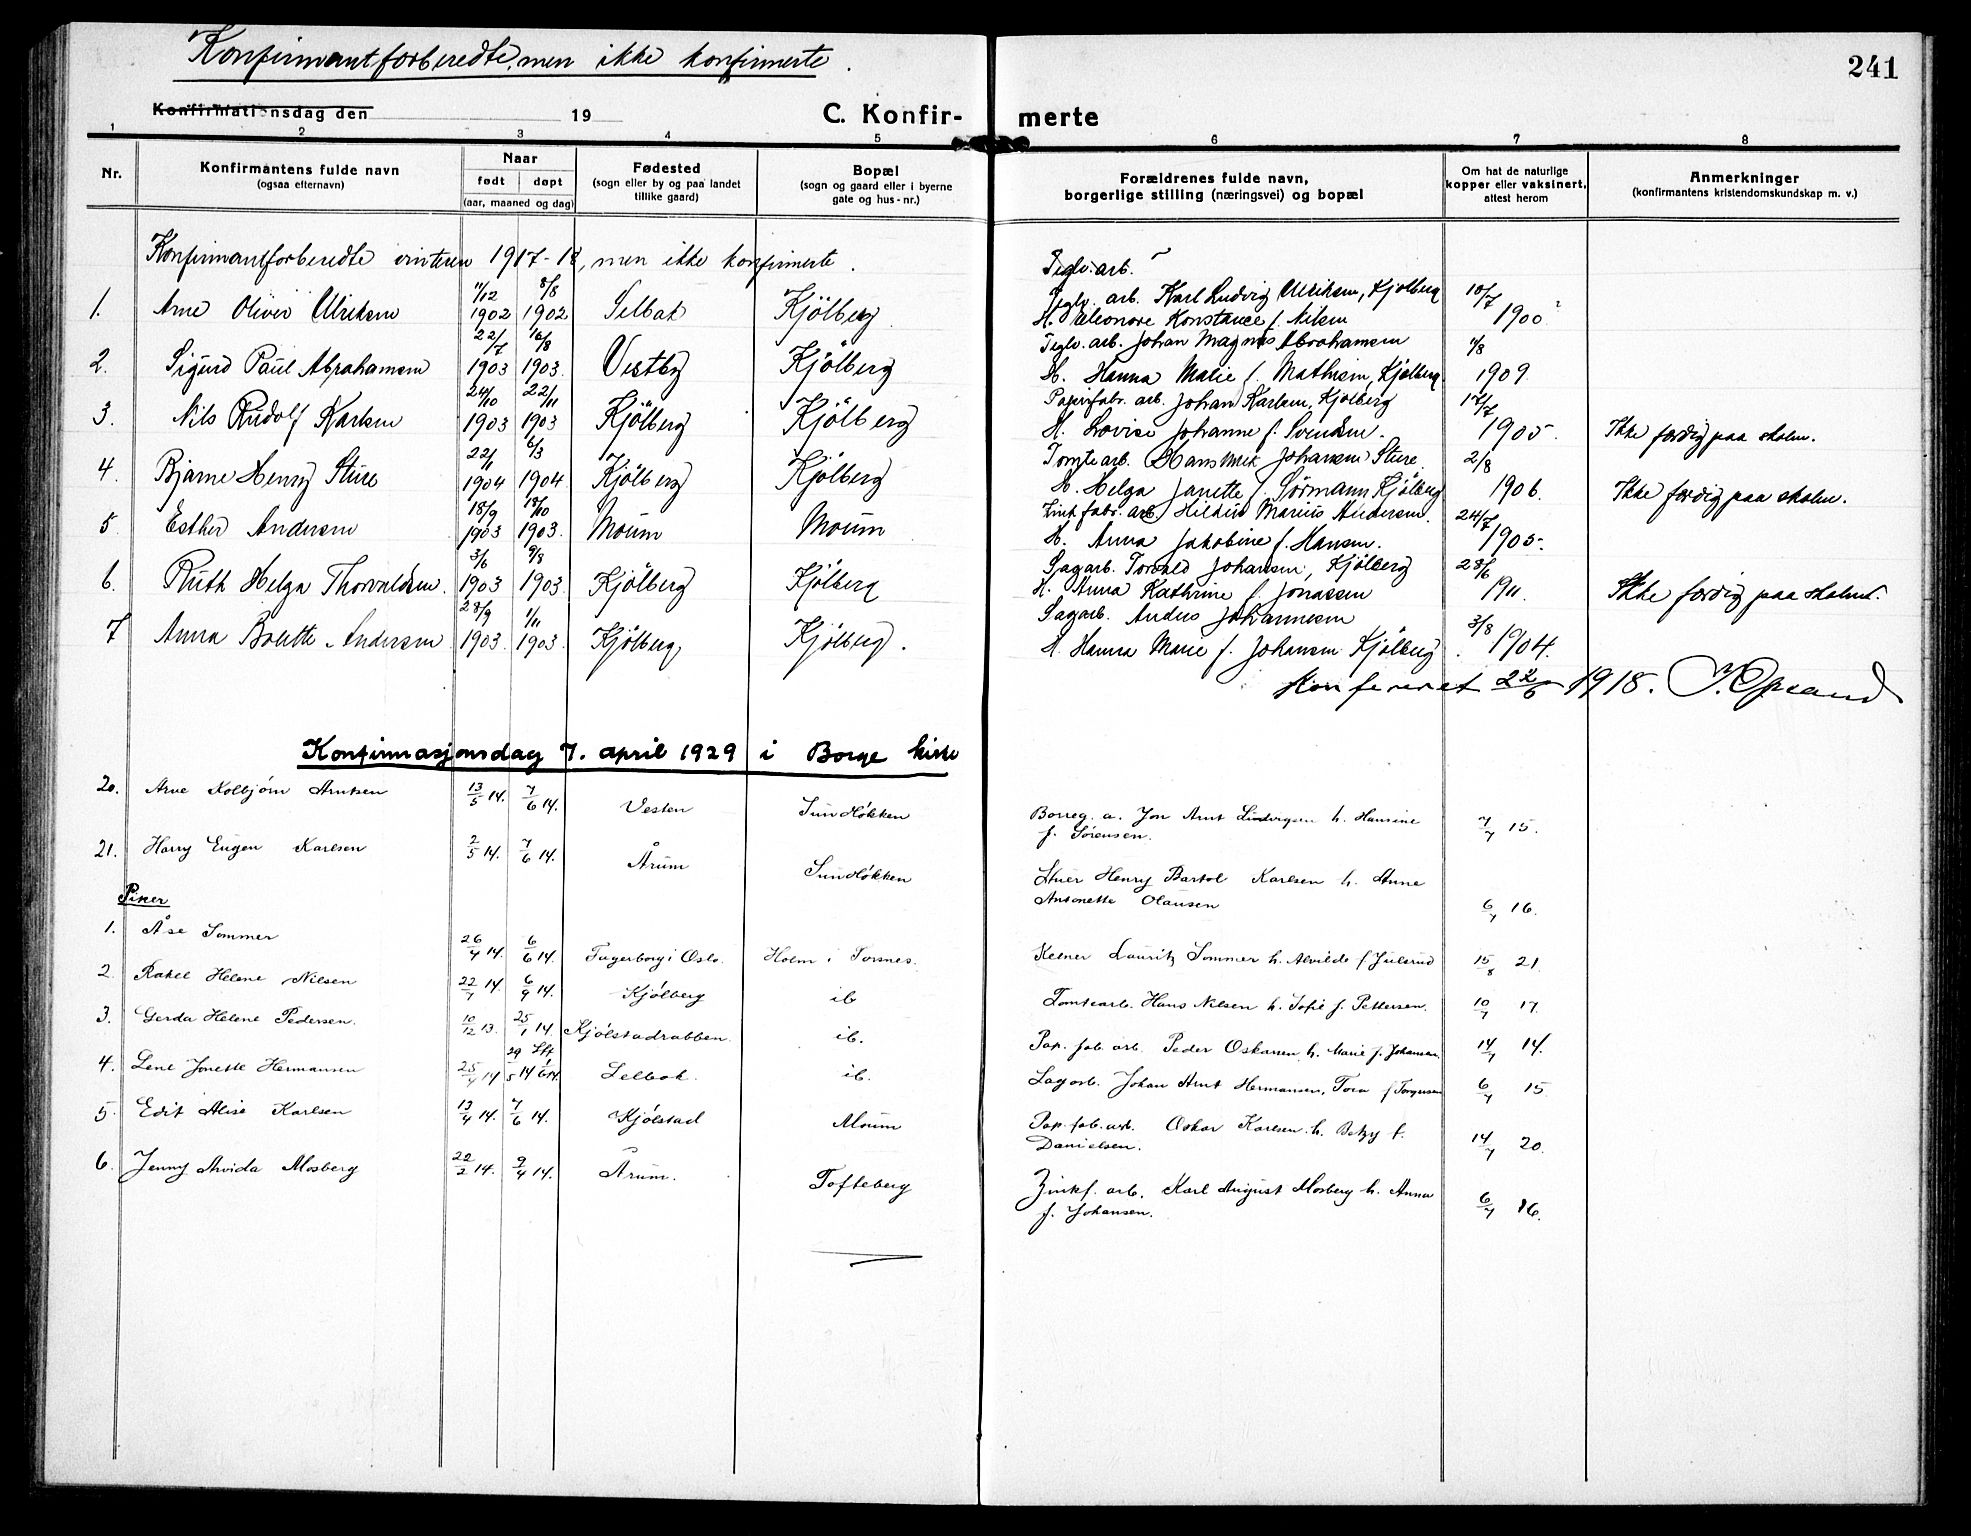 Konfirmantforberedte, men ikke konfirmerte.
241
Konfirmationsdag den 19
C. Konfir- merte
1 2 3 4 5 6 7 8
Nr.
Konfirmantens fulde navn
(ogsaa efternavn)
Naar
født døpt
(aar, maaned og dag)
Fødested
(sogn eller by og paa landet
tillike gaard)
Bopæl
(sogn og gaard eller i byerne
gate og hus-nr.)
Forældrenes fulde navn,
borgerlige stilling (næringsvei) og bopæl
Om hat de naturlige
kopper eller vaksinert,
attest herom
Anmerkninger
(konfirmantens kristendomskundskap m. v.)
Konfirmantforberedte vinteren 1917-18, men ikke konfirmerte.
Teglv. arb.
1. Arne Oliver Ulriksen 11/12 1902 8/8 1902 Selbak Kjölberg Teglv. arb. Karl Ludvig Ulriksen, Kjølberg 10/7 1900?
H. Eleonore Konstance f. Nilsen
2. Sigurd Paul Abrahamsen 22/7 1903 16/8 1903. Vestby Kjölberg Teglv. arb. Johan Magnus Abrahamsen 11/8 1909.
H. Hanna Marie f. Mathisen, Kjölberg
3. Nils Rudolf Karlsen 24/10 1903 22/11 1903 Kjölberg Kjölberg Papirfabr. arb. Johan Karlsen, Kjölberg 17/7 1905. Ikke færdig paa skolen.
H. Lovise Johanne f. Svendsen.
4. Bjarne Henry Sture 22/1 1904 6/3 1904 Kjölberg Kjölberg Tomtearb. Hans Johansen Sture 2/8 1906. Ikke færdig paa skolen.
H. Helga Janette f. Sörmann Kjölberg
5. Esther Andersen 18/9 1903 18/10 1903. Moum Moum Zinkfabr. arb. Marius Andersen. 24/7 1905.
H. Anna Jakobine f. Hansen.
6. Ruth Helga Thorvaldsen. 3/6 1903 9/8 1903. Kjölberg Kjölberg Sagarb. Torvald Johansen, Kjölberg 28/6 1911. Ikke færdig paa skolen.
H. Anna Kathrine f. Jonassen
7 Anna Bolette Andersen 28/9 1903. 1/11 1903. Kjölberg Kjölberg. Sagarb. Anders Johannesen 3/8 1904.
H. Hanna Marie f. Johansen Kjölberg
Konfereret 22/6 1918. J. Opsand
Konfirmasjonsdag 7. april 1929 i Borge kirke
20. Arve Kolbjörn Arntsen 13/5 14. 7/6 14. Vesten Sundløkken Borreg. a. Jon Arnt Lindvigsen h. Hansine 7/7 15.
f. Sørensen.
21. Harry Eugen Karlsen 2/5 14. 7/6 14. Årum Sundløkken Stuer Henry Bartol Karlsen h. Anne
Antonette Olausen 6/7 16.
Piker
1. Åse Sommer 26/4 14. 6/6 14. Fagerborg i Oslo. Holm i Torsnes. Kelner Lauritz Sommer h. Alvilde f Julsrud 15/8 21.
2. Rakel Helene Nilsen 22/7 14. 6/9 14. Kjølberg ib Tomtearb. Hans Nilsen h. Sofie f. Pettersen. 10/7 17.
3. Gerda Helene Pedersen. 10/12 13. 25/1 14. Kjølstadrabben. ib. Pap. fab. arb. Peder Oskarsen, h. Marie f. Johansen. 14/7 14.
4. Lene Jonette Hermansen 25/4 14 29/5 14 Stf 1/6 14. Selbak. ib. Sagarb. Johan Arnt Hermansen, Tora f Torgersen 6/7 15.
5. Edit Alise Karlsen 13/4 14. 7/6 14. Kjölstad Moum Pap. fab. arb. Oskar Karlsen. h. Betzy f.
Danielsen. 14/7 20.
6. Jenny Arvida Mosberg 22/2 14. 9/4 14. Årum. Tofteberg Zinkf. arb. Karl August Mosberg h. Anna
f. Johansen. 6/7 16.